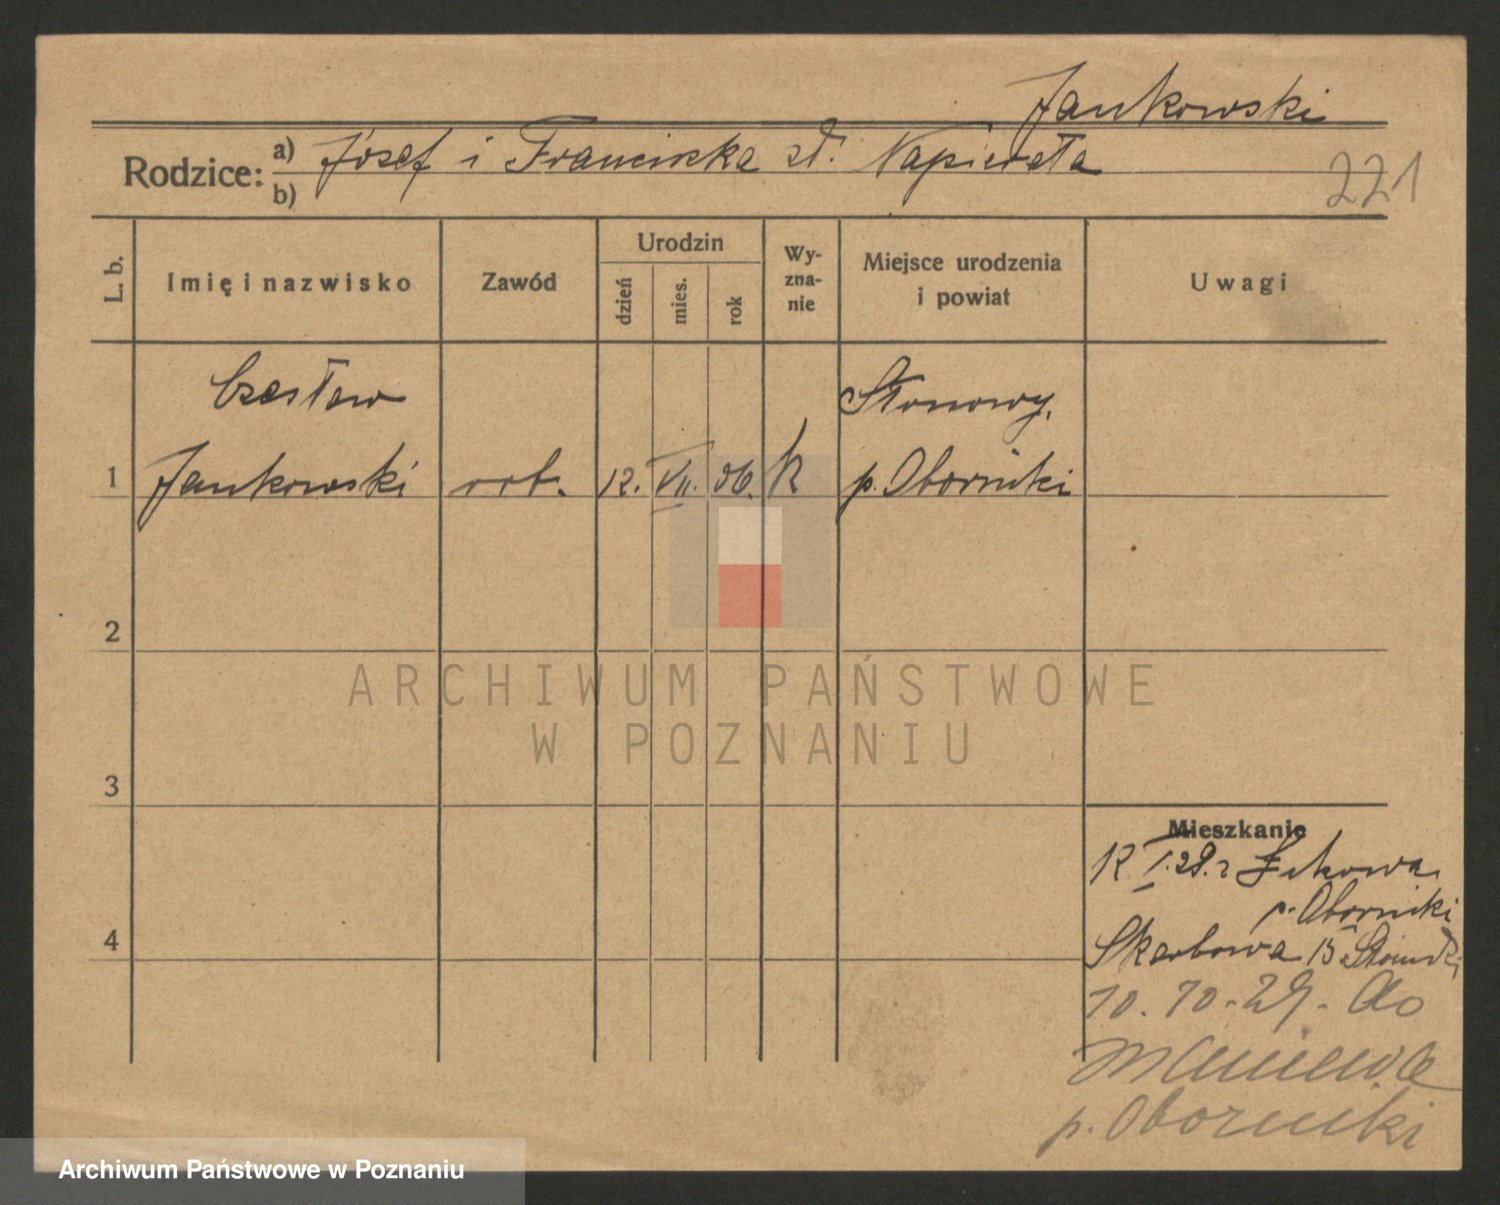 Jankowski
Rodzice: a) Józef i Franciszka zd. Napierała
b)
221
L. b.
Imię i nazwisko
Zawód
Urodzin
dzień
mies.
rok
Wy-
zna-
nie
Miejsce urodzenia
i powiat
Uwagi
Czesław
Jankowski
1
rob.
12. VII. 06. k
Słonowy,
p. Oborniki
2
3
4
ARCHIWUM PAŃSTWOWE
W POZNANIU
Mieszkanie
12. I. 29. z
p. Oborniki
Skarbowa 13
10.10.29. do
Maniewa
p. Oborniki
Archiwum Państwowe w Poznaniu